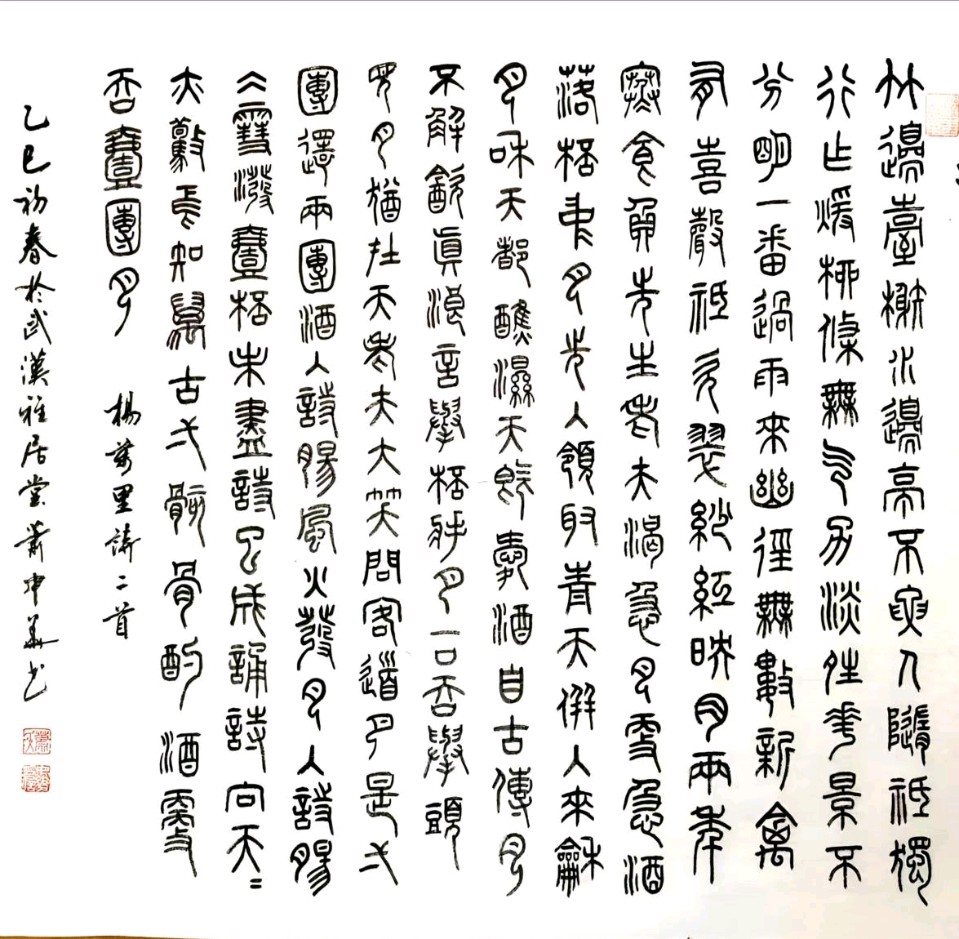 竹邊臺榭水邊亭不要人隨祗獨
行乍煖柳條無气力淡晴花景不
分明一番過雨來幽徑無數新禽
有喜聲祗欠翠紗紅映肉兩年
寒食負先生老夫渴急月更急酒
落杯中月先入領取青天併入來龢
月和天都蘸濕天既愛酒自古傳月
不解飲真浪言舉杯將月一口吞舉頭
見月猶在天老夫大笑問客道月是弌
團還兩團酒入詩腸風火發月入詩腸
冰雪潑壹杯未盡詩已成誦詩向天=
亦驚焉知萬古弌骸骨酌酒更
吞壹團月 楊萬里詩二首
乙巳初春於武漢雅居堂蕭申華書